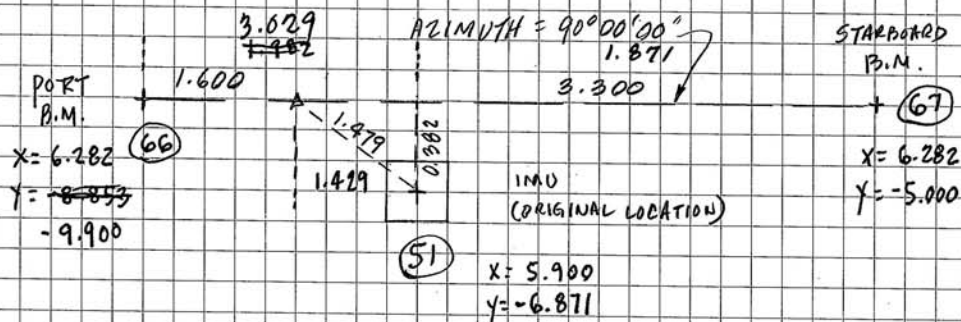 3.029
1.982
AZIMUTH = 90°00'00"
1.871
STARBOARD
B.M.
PORT
B.M.
1.600
3.300
66
67
X= 6.282
Y= -8.853
-9.900
1.479
0.382
1.429
IMU
(ORIGINAL LOCATION)
X= 6.282
Y= -5.000
51
X= 5.900
Y= -6.871